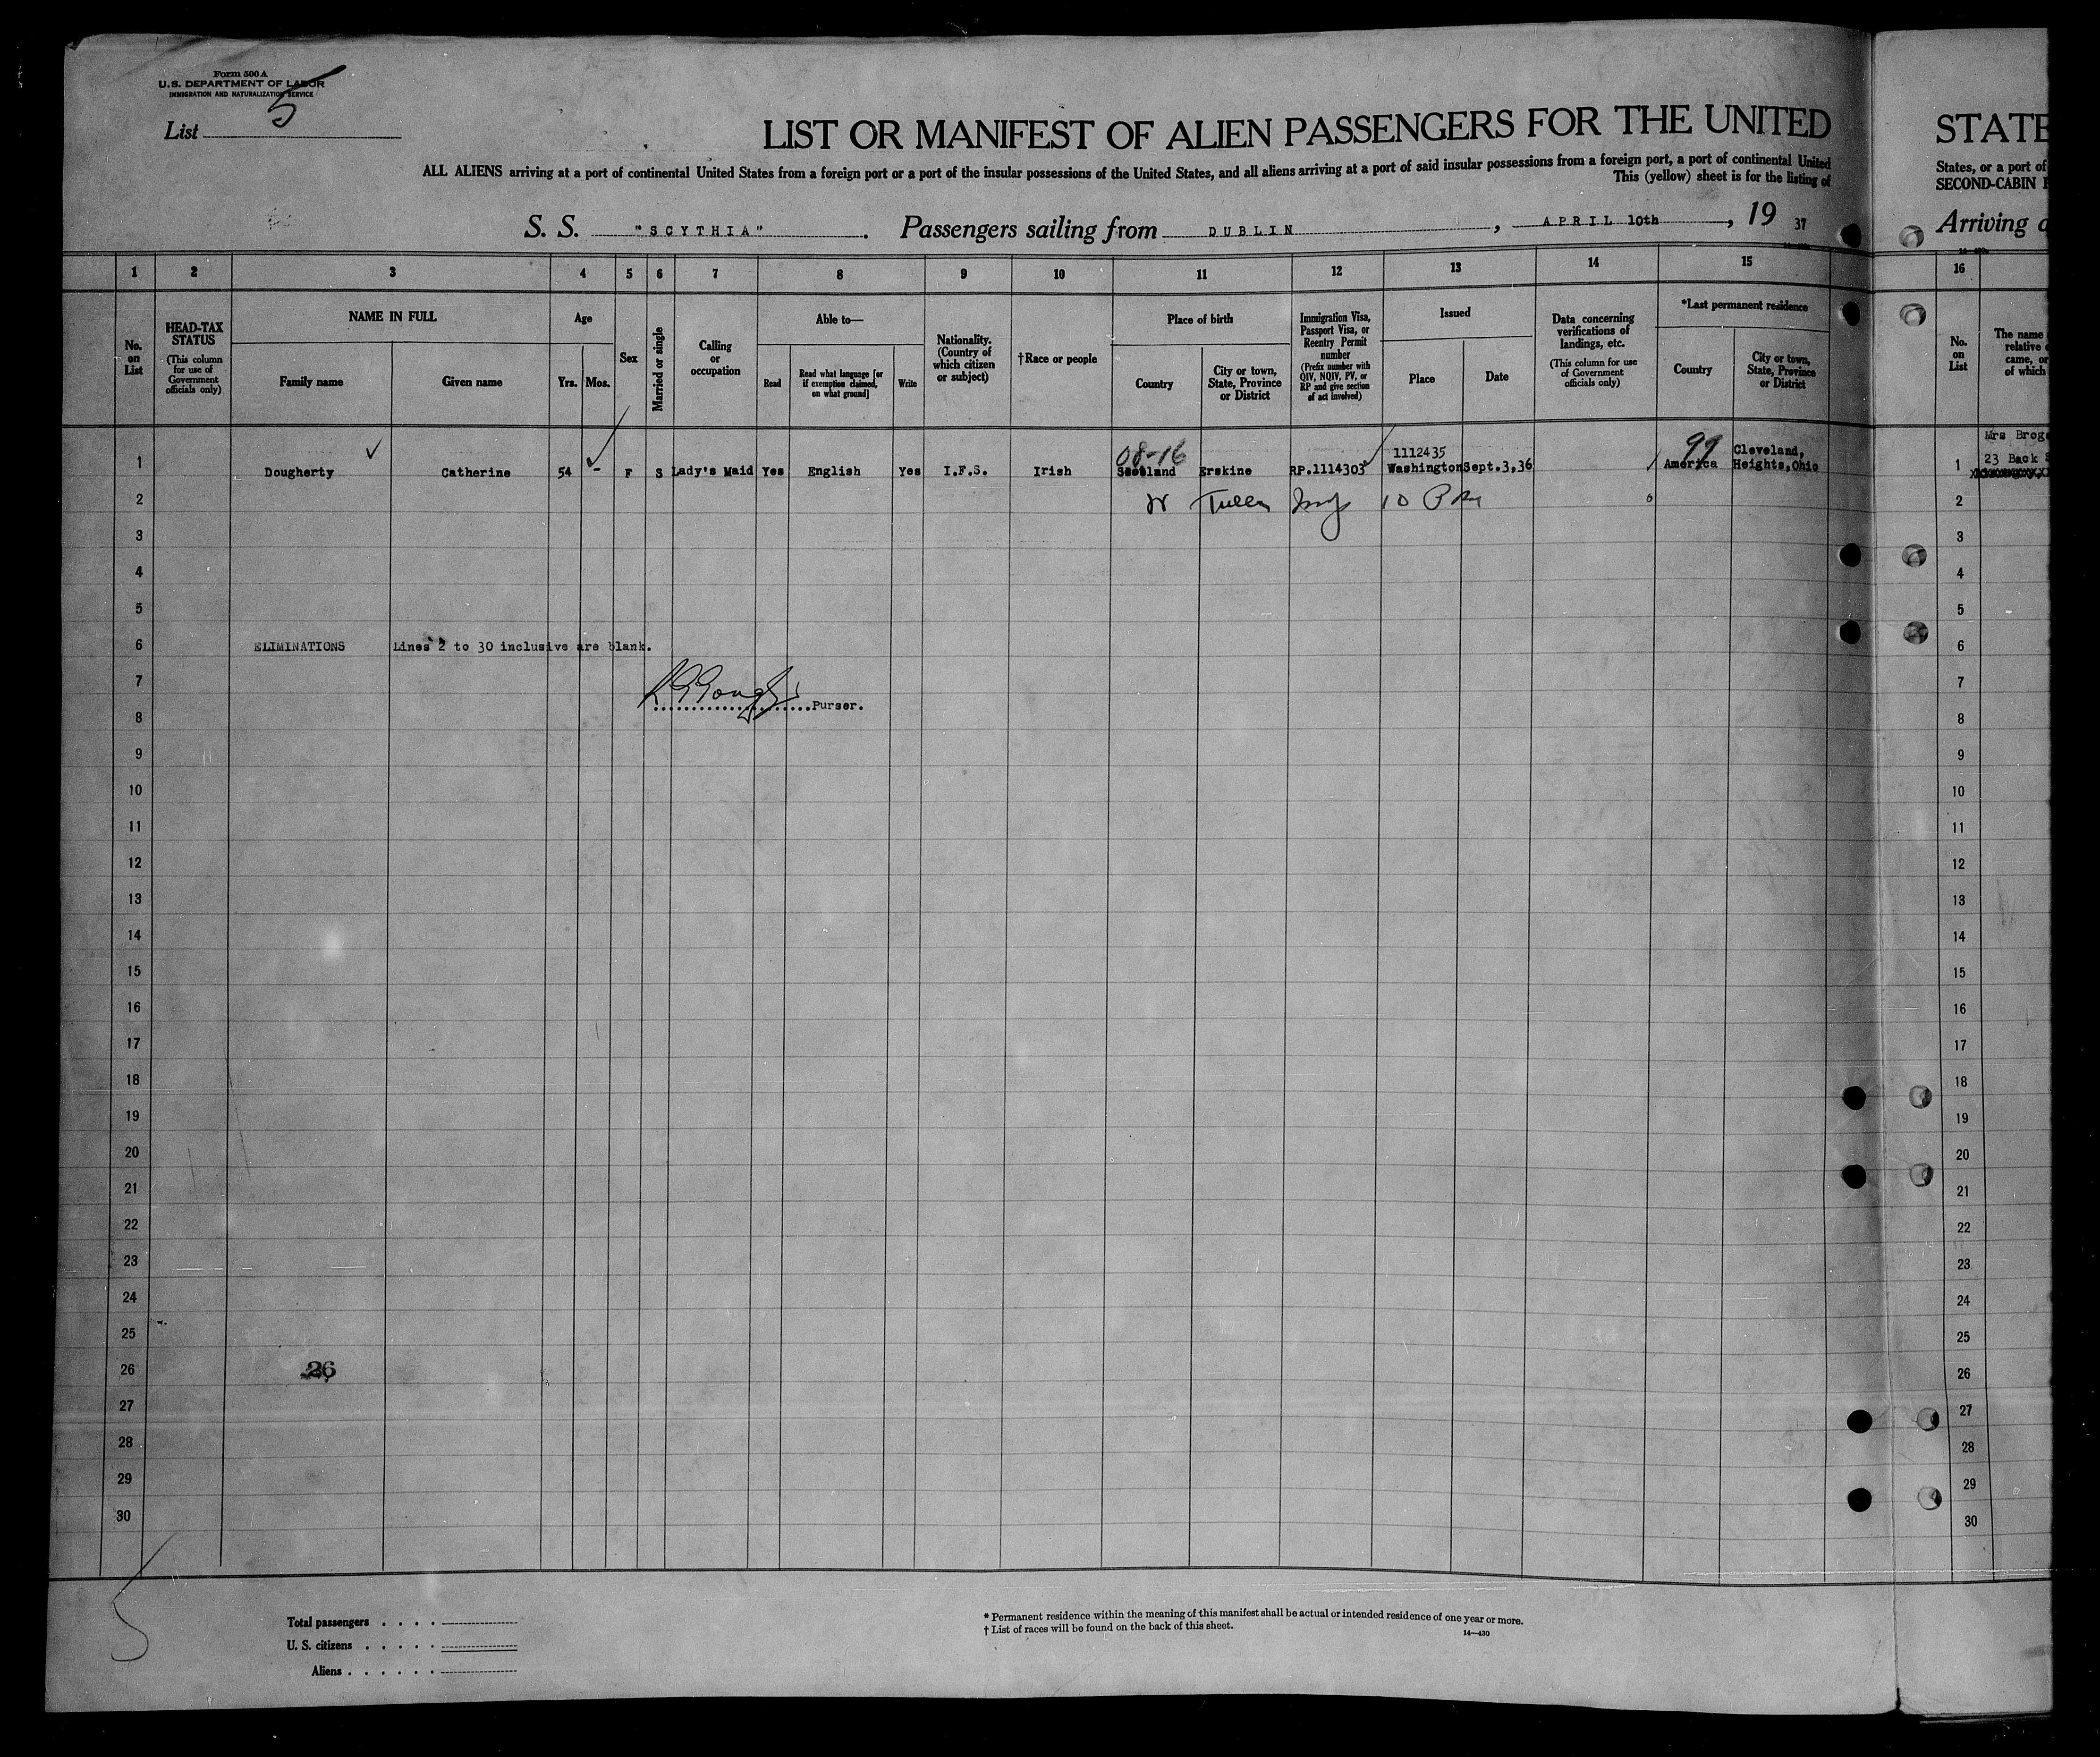 Form 500 A
U.S. DEPARTMENT OF LABOR
IMMIGRATION AND NATURALIZATION SERVICE
List 5
LIST OR MANIFEST OF ALIEN PASSENGERS FOR THE UNITED
ALL ALIENS arriving at a port of continental United States from a foreign port or a port of the insular possessions of the United States, and all aliens arriving at a port of said insular possessions from a foreign port, a port of continental United
This (yellow) sheet is for the listing of
S. S. "SCYTHIA". Passengers sailing from DUBLIN, APRIL 10th, 19 37
STATE
States, or a port of
SECOND-CABIN
Arriving
1 2 3 4 5 6 7 8 9 10 11 12 13 14 15 16
No. on List
HEAD-TAX STATUS
(This column for use of Government officials only)
NAME IN FULL
Family name
Given name
Age
Yrs. Mos.
Sex
Married or single
Calling or occupation
Able to—
Read
Read what language [or if exemption claimed, on what ground]
Write
Nationality. (Country of which citizen or subject)
†Race or people
Place of birth
Country
City or town, State, Province or District
Immigration Visa, Passport Visa, or Reentry Permit number
(Prefix number with QIV, NQIV, PV, or RP and give section of act involved)
Issued
Place
Date
Data concerning verifications of landings, etc.
(This column for use of Government officials only)
*Last permanent residence
Country
City or town, State, Province or District
No. on List
The name
relative
came, or
of which
08-16 1112435 99 Cleveland, Mrs
1 Dougherty Catherine 54 - F S Lady's Maid Yes English Yes I.F.S. Irish Scotland Erskine RP.1114303 Washington Sept.3,36 America Heights,Ohio 1 23 Back
2 2
3 3
4 4
5 5
6 ELIMINATIONS Lines 2 to 30 inclusive are blank. 6
7 7
8 Purser. 8
9 9
10 10
11 11
12 12
13 13
14 14
15 15
16 16
17 17
18 18
19 19
20 20
21 21
22 22
23 23
24 24
25 25
26 26 26
27 27
28 28
29 29
30 30
5
Total passengers . . . .
U. S. citizens . . . . .
Aliens . . . . . .
* Permanent residence within the meaning of this manifest shall be actual or intended residence of one year or more.
† List of races will be found on the back of this sheet.
14—430